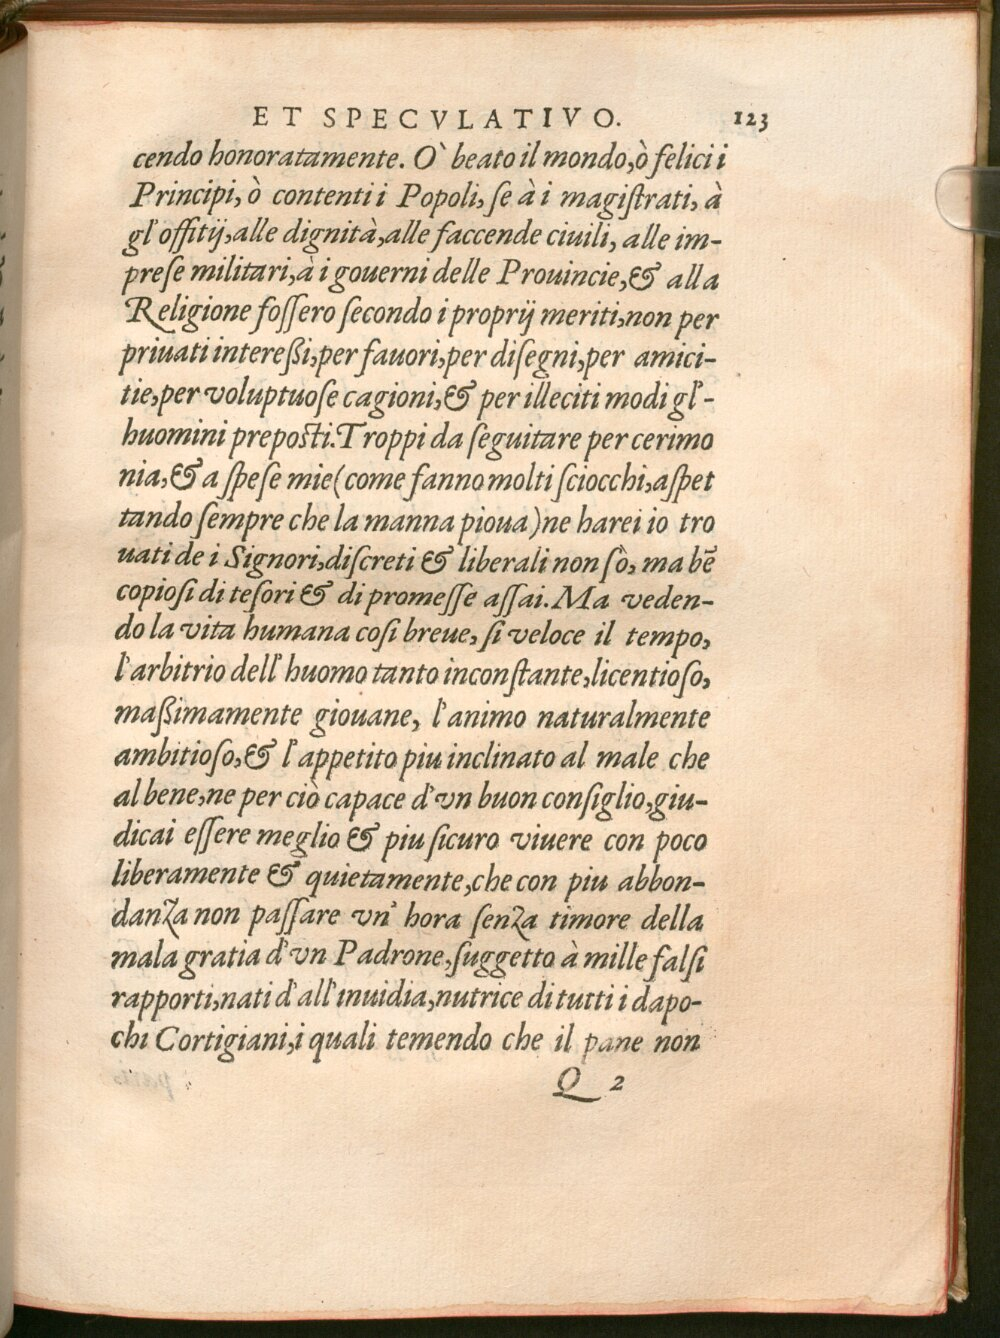 ET SPECVLATIVO. 123
cendo honoratamente. O` beato il mondo,ò felici i
Principi, ò contenti i Popoli, ſe à i magiſtrati, à
gl'offitij,alle dignità,alle faccende ciuili, alle im-
preſe militari,à i gouerni delle Prouincie,& alla
Religione foſſero ſecondo i proprij meriti,non per
priuati intereßi,per fauori,per diſegni,per amici-
tie,per voluptuoſe cagioni,& per illeciti modi gl'-
huomini prepoſti.Troppi da ſeguitare per cerimo
nia,& a ſpeſe mie(come fanno molti ſciocchi,aſpet
tando ſempre che la manna pioua)ne harei io tro
uati de i Signori,diſcreti & liberali non ſò, ma bẽ
copioſi di teſori & di promeſſe aſſai.Ma veden-
do la vita humana coſi breue, ſi veloce il tempo,
l'arbitrio dell' huomo tanto inconſtante,licentioſo,
maßimamente giouane, l'animo naturalmente
ambitioſo,& l'appetito piu inclinato al male che
al bene,ne per ciò capace d'vn buon conſiglio,giu-
dicai eſſere meglio & piu ſicuro viuere con poco
liberamente & quietamente,che con piu abbon-
danza non paſſare vn' hora ſenza timore della
mala gratia d'vn Padrone,ſuggetto à mille falſi
rapporti,nati d'all'inuidia,nutrice di tutti i dapo-
chi Cortigiani,i quali temendo che il pane non
Q 2